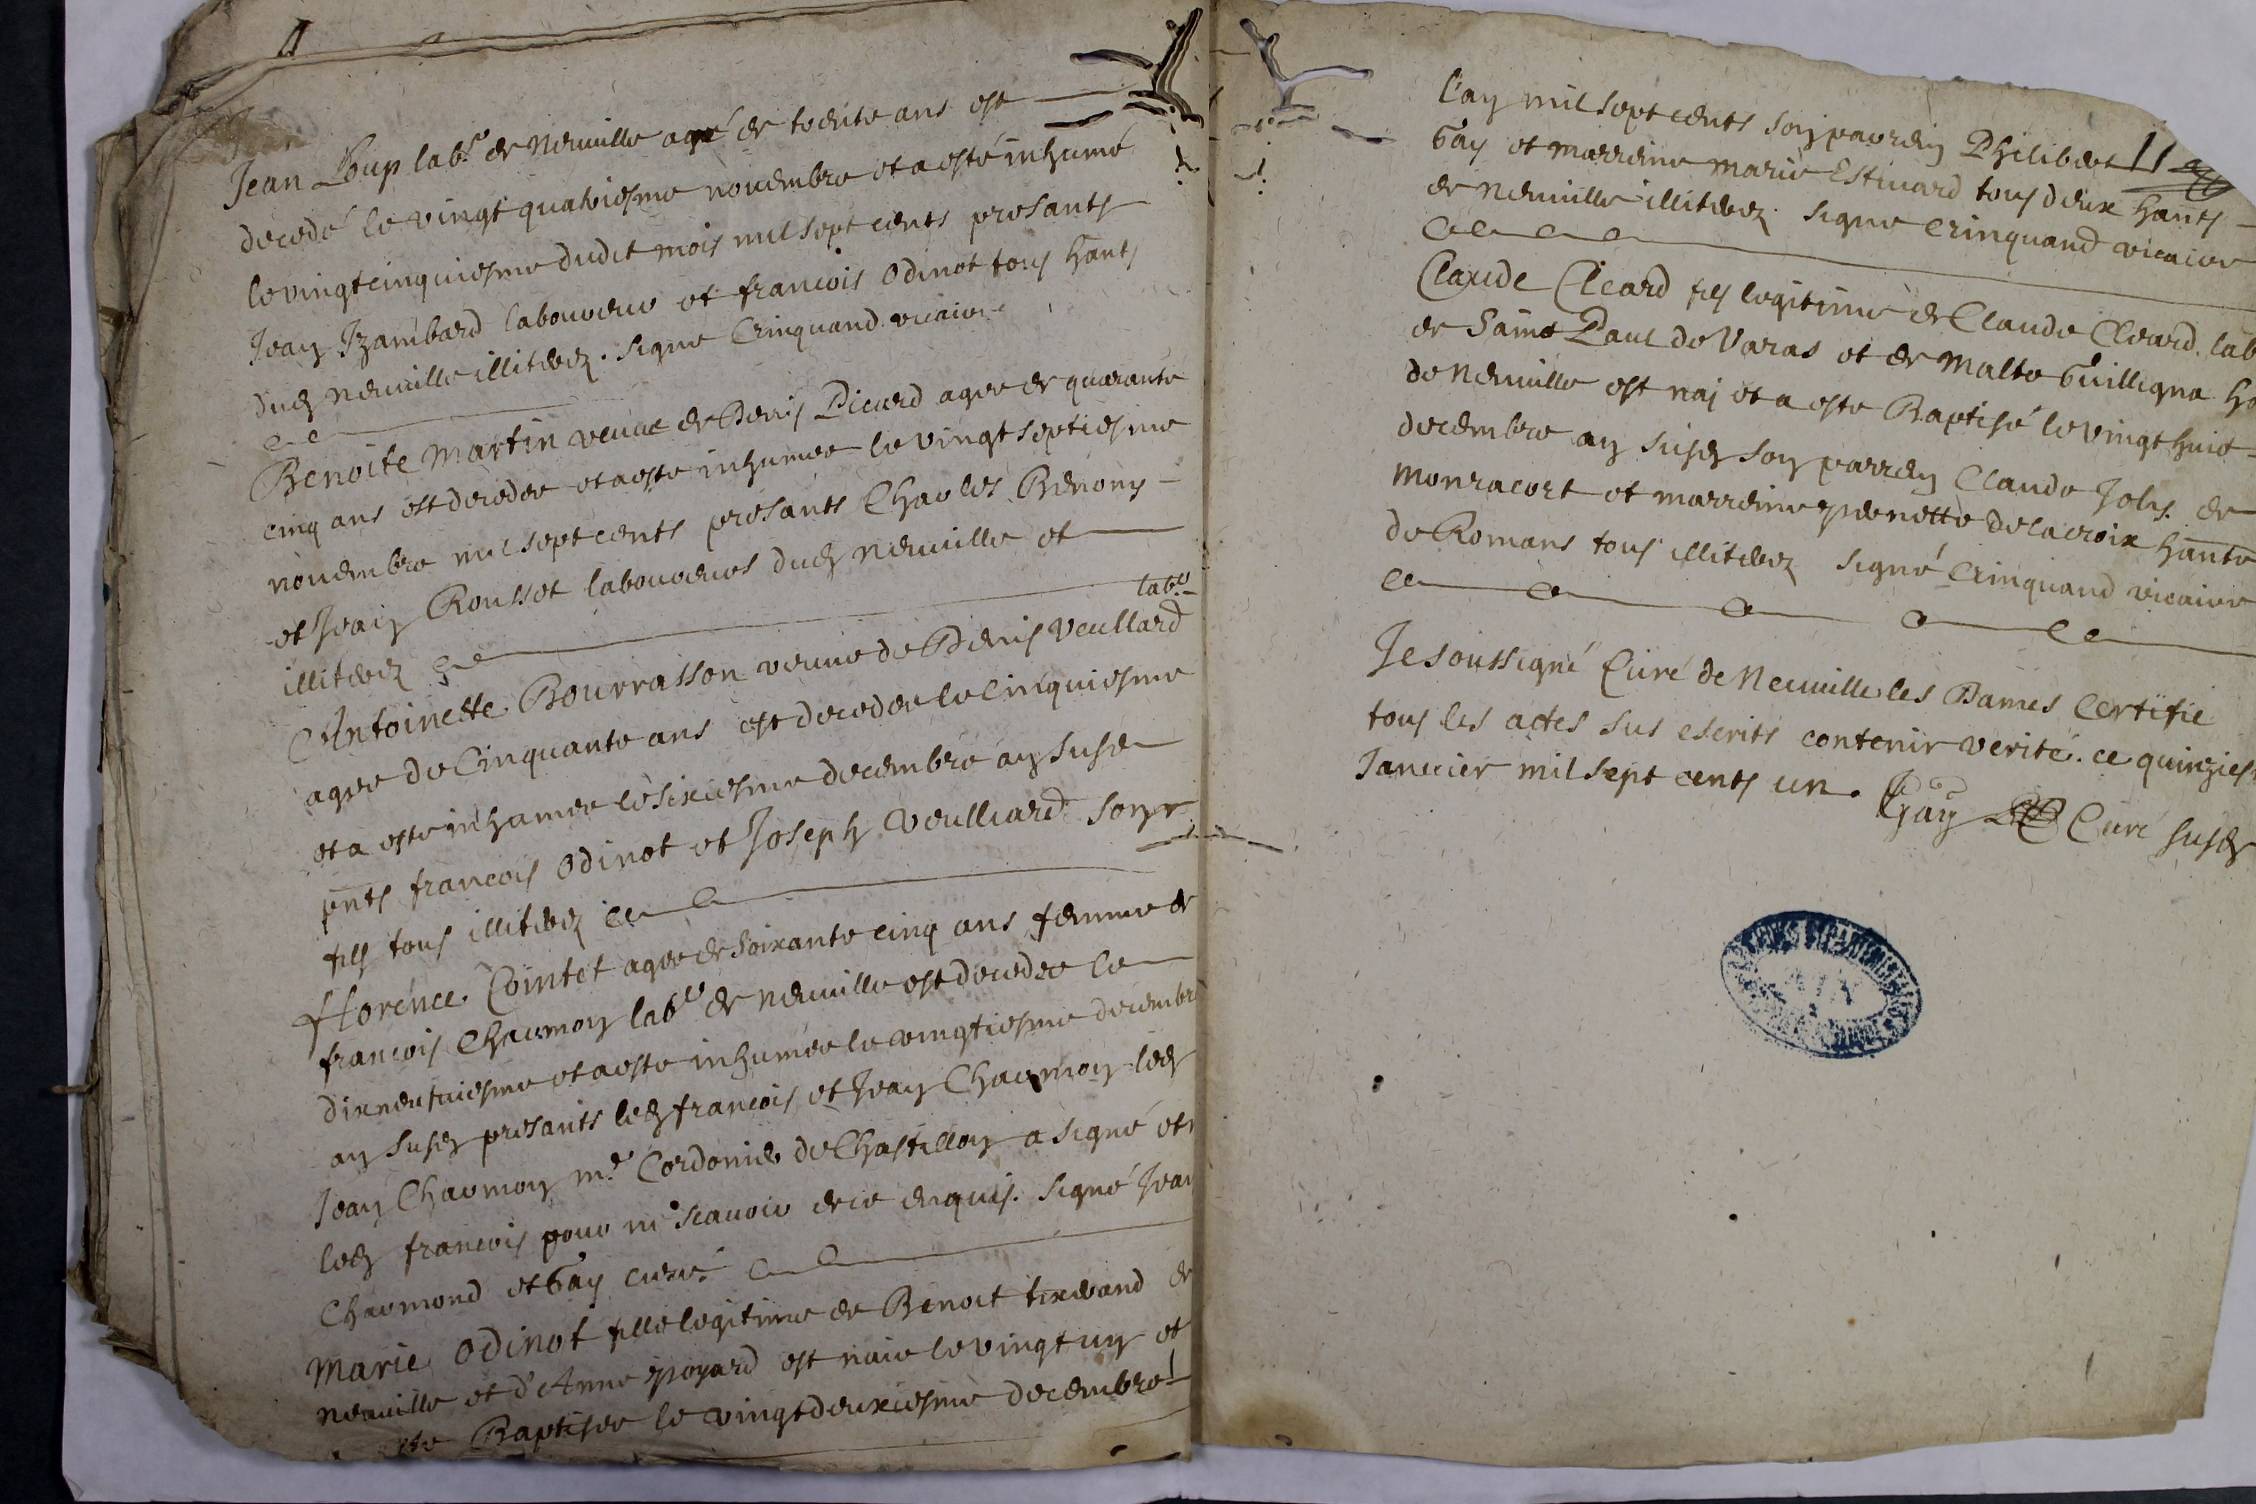 Jean Loup lab.r de Neuville agé de trente ans est
decedé le vingt quatriesme novembre et a esté inhumé
le vingt cinquiesme dudit mois mil sept cents presants
Jean Izambard laboureur et francois Odinot tous hants
dud Neuville illiterez. signe Crinquand vicaire
Benoite Martin veuve de Denis Picard agee de quarante
cinq ans est decedee et a este inhumee le vingt septiesme
novembre mil sept cents presants Charles Benony
et Jean Rousset laboureurs dud Neuville et
illiterez
lab.r
Antoinette Bourrasson veuve de Denis Veullard
agee de Cinquante ans est decedee le cinquiesme
et a este inhumee le sixiesme decembre an susd
pnts francois Odinot et Joseph Veulliard son
fils tous illiterez
florence Cointet agee de soixante cinq ans femme de
francois Chaumon lab.r de Neuville est decedee le
dixneufviesme et a este inhumee le vingtiesme decembre
an susd presants led francois et Jean Chaumon led
Jean Chaumon m.e Cordonier de Chastillon a signé et n
led francois pour ne scavoir de ce enquis. signé Jean
Chaumond et Gay curé
Marie Odinot fille legitime de Benoit tixerand de
Neuville et d'Anne poyard est naie le vingt un et
Baptisee le vingt deuxiesme decembre
l'an mil sept cents son parrein Philibert 11
Gay et marreine Marie Estivard tous deux hants
de Neuville illiterez. signe Crinquand vicaire
Claude Cleard fils legitime de Claude Cleard. lab
de Saint Paul de Varas et de Malte Guilligna
de Neuville est nai et a este Baptisé le vingt huit
decembre an susd son parrein Claude Joly de
Monracort et marreine pernette Delacroix hante
de Romans tous illiterez signé Crinquand vicaire
Je soussigné Curé de Neuville les Dames Certifie
tous les actes sus escrits contenir verité. ce quinzies
Janvier mil sept cents un. Gay Curé susd